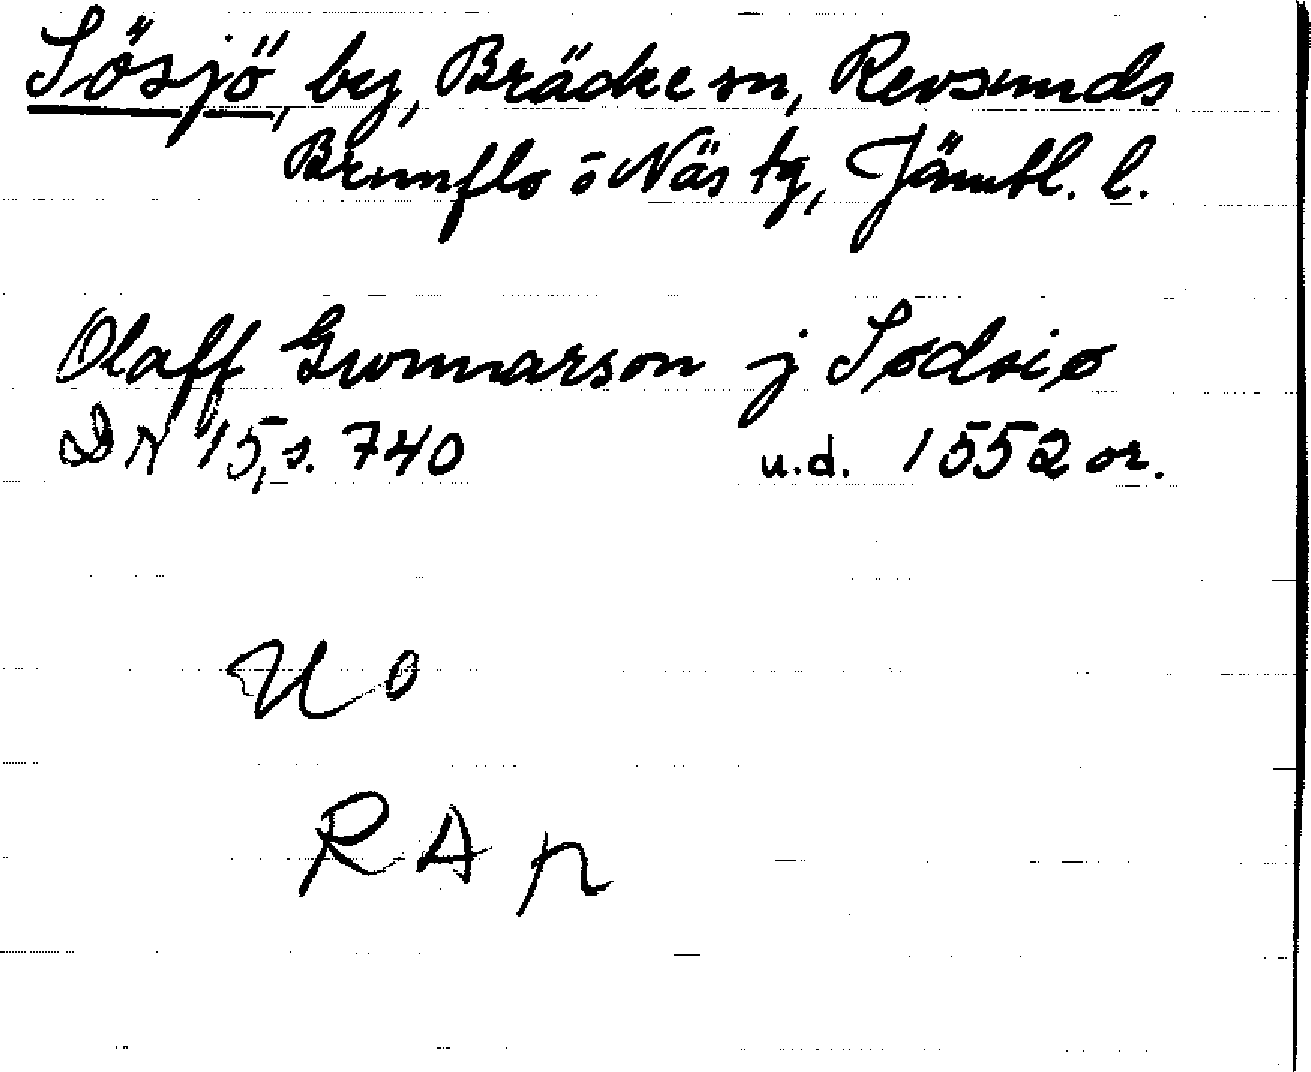 Sösjö, by, Bräcke sn, Revsunds
Brunflo o Näs tg, Jämtl. l.
Olaff Gwnnarson j Sødsiø
DN 15, s. 740 u.d. 1552 or.
NO
RAp